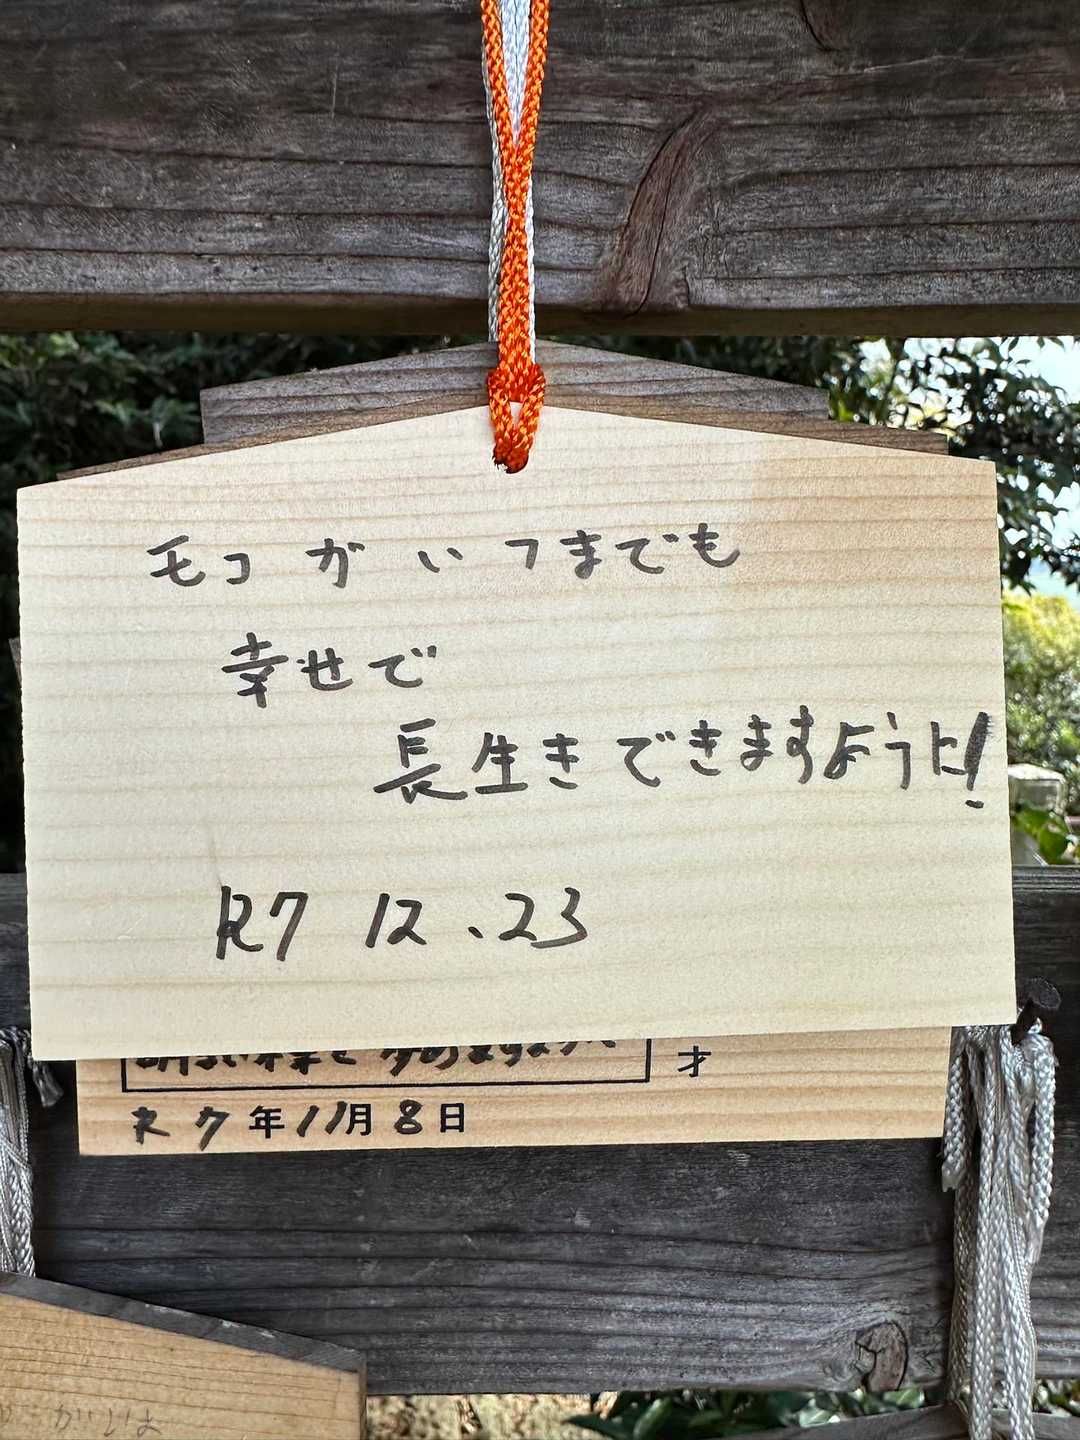 モコがいつまでも
幸せで
長生きできますように!
R7 12.23
才
R7年11月8日